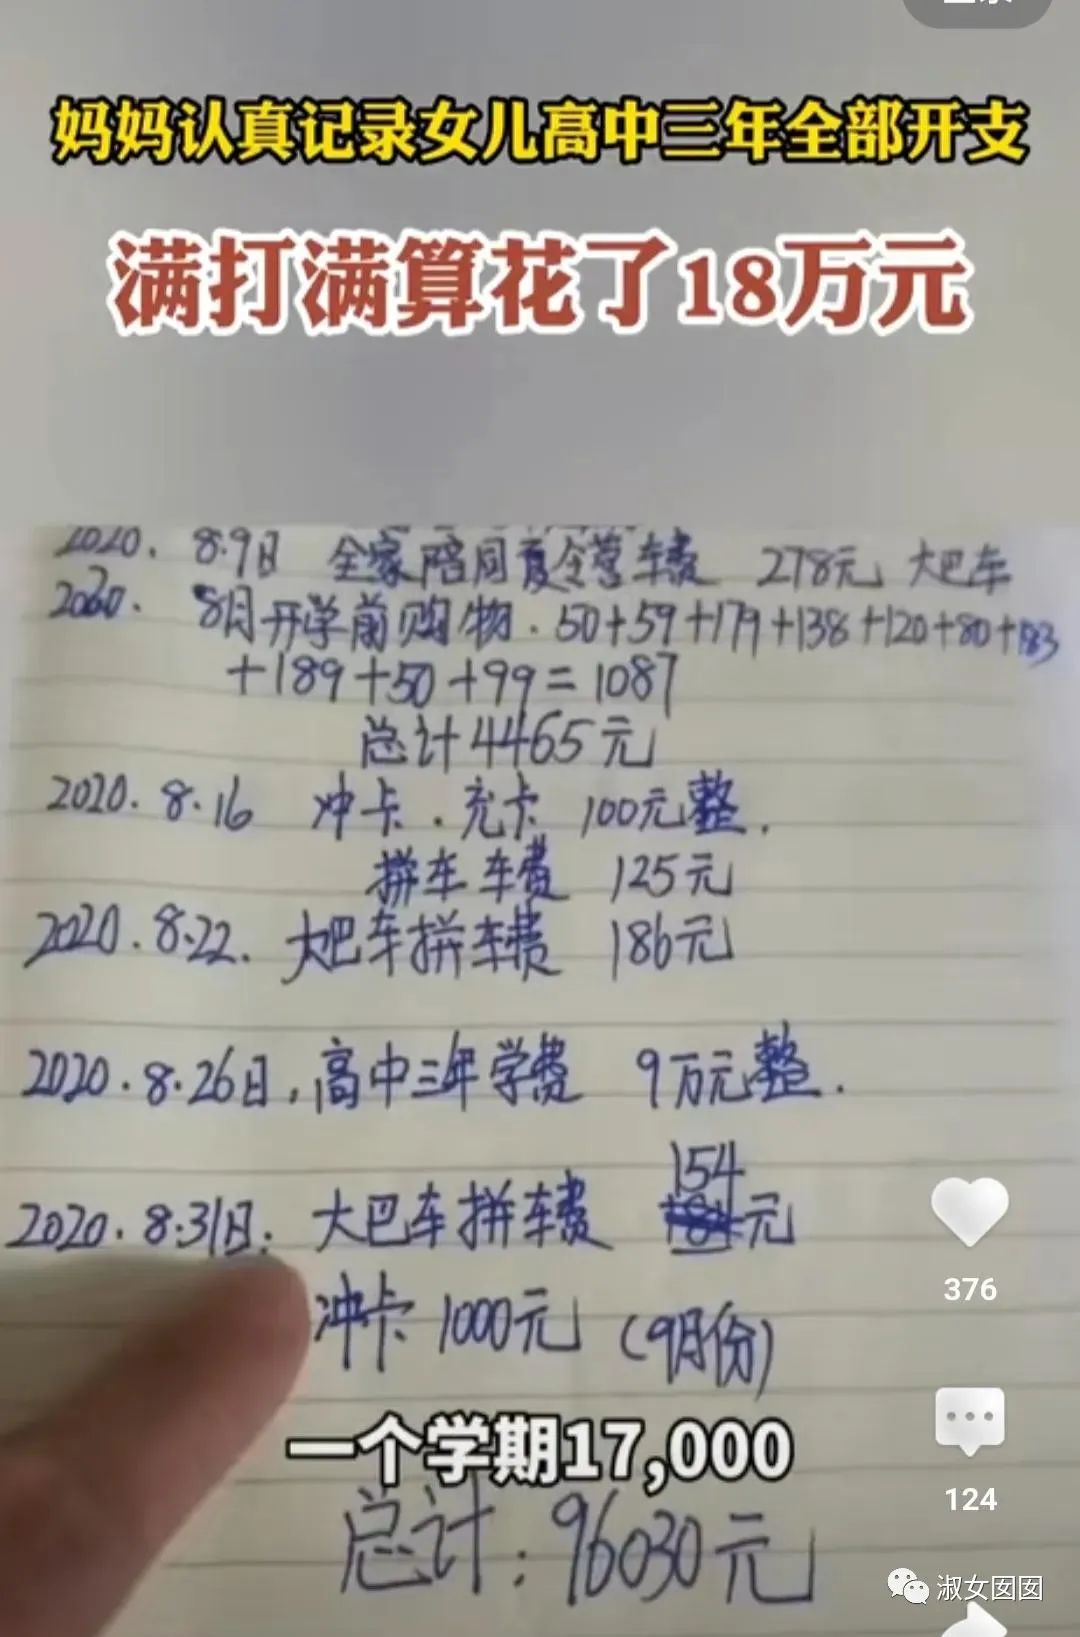 妈妈认真记录女儿高中三年全部开支
满打满算花了18万元
2020. 8.9日 全家陪同夏令营车费 278元 大巴车
2020. 8月开学前购物. 50+59+179+138+120+80+183
+189+50+99=1087
总计4465元
2020. 8.16 冲卡.充卡 100元整.
拼车车费 125元
2020.8.22. 大巴车拼车费 186元
2020.8.26日,高中三年学费 9万元整.
154
2020.8.31日: 大巴车拼车费 元
冲卡 1000元 (9月份)
376
一个学期17,000
124
总计: 96030元
淑女囡囡